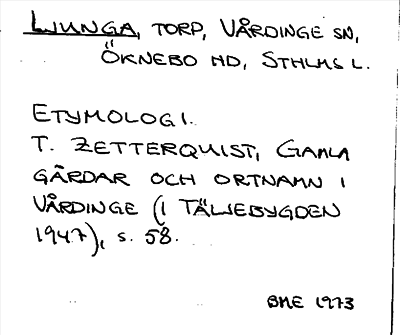 LJUNGA, TORP, VÅRDINGE SN,
ÖKNEBO HD, STHLMS L.
ETYMOLOGI.
T. ZETTERQUIST, GAMLA
GÅRDAR OCH ORTNAMN I
VÅRDINGE (I TÄLJEBYGDEN
1947), s. 58.
BME 1973